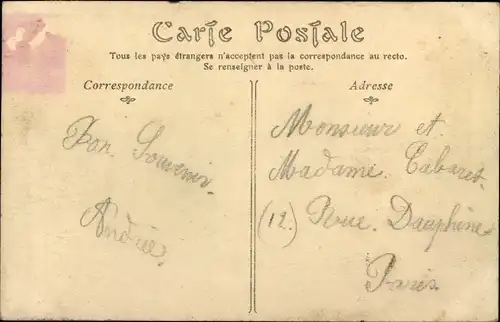 Carte Postale
Tous les pays étrangers n'acceptent pas la correspondance au recto.
Se renseigner à la poste.
Correspondance
Bon Souvenir.
Andrée
Adresse
Monsieur et
Madame. Cabaret.
(12.) Rue. Dauphine
Paris.